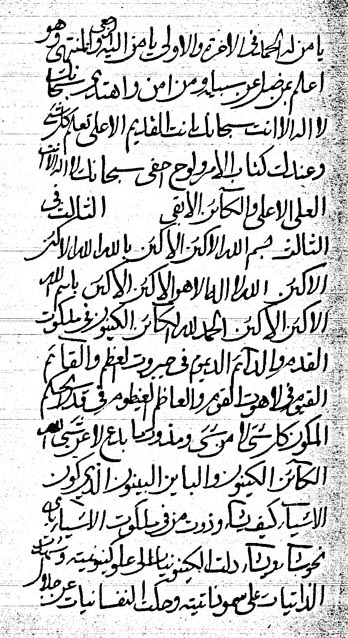 يا من له الحمد في الاخرة والاولى يا من اليه المنتهى وهو
اعلم بمن ضل عن سبيله ومن امن واهتدى سبحانك
لا اله الا انت سبحانك انت القديم الاعلى تعلم كل شي
وعندك كتاب الامر ولوح اخفى سبحانك لا اله الا انت
العلي الاعلى والكائن الابقى الثالث في
الثالث بسم الله الاكين الاكين بالله الله الاكين
الاكين الله لا اله الا هو الاكين الاكين باسم الله
الاكين الاكين الحمد لله الكائن الكينون في ملكوت
القدم والدائم الديموم في جبروت العظم والقائم
القيوم في لاهوت القوم والعاظم العيظوم في
المكون كل شي لا من شي ومذوت لا عن شي الله
الكائن الكينون والباين البينون الذي كون
الاشياء كيف يشاء وذوت من في ملكوت الاسماء
نحو ما يشاء دلت الكينونيات على علو كينونيته
الذاتيات على وحكت النفسانيات عن جلال